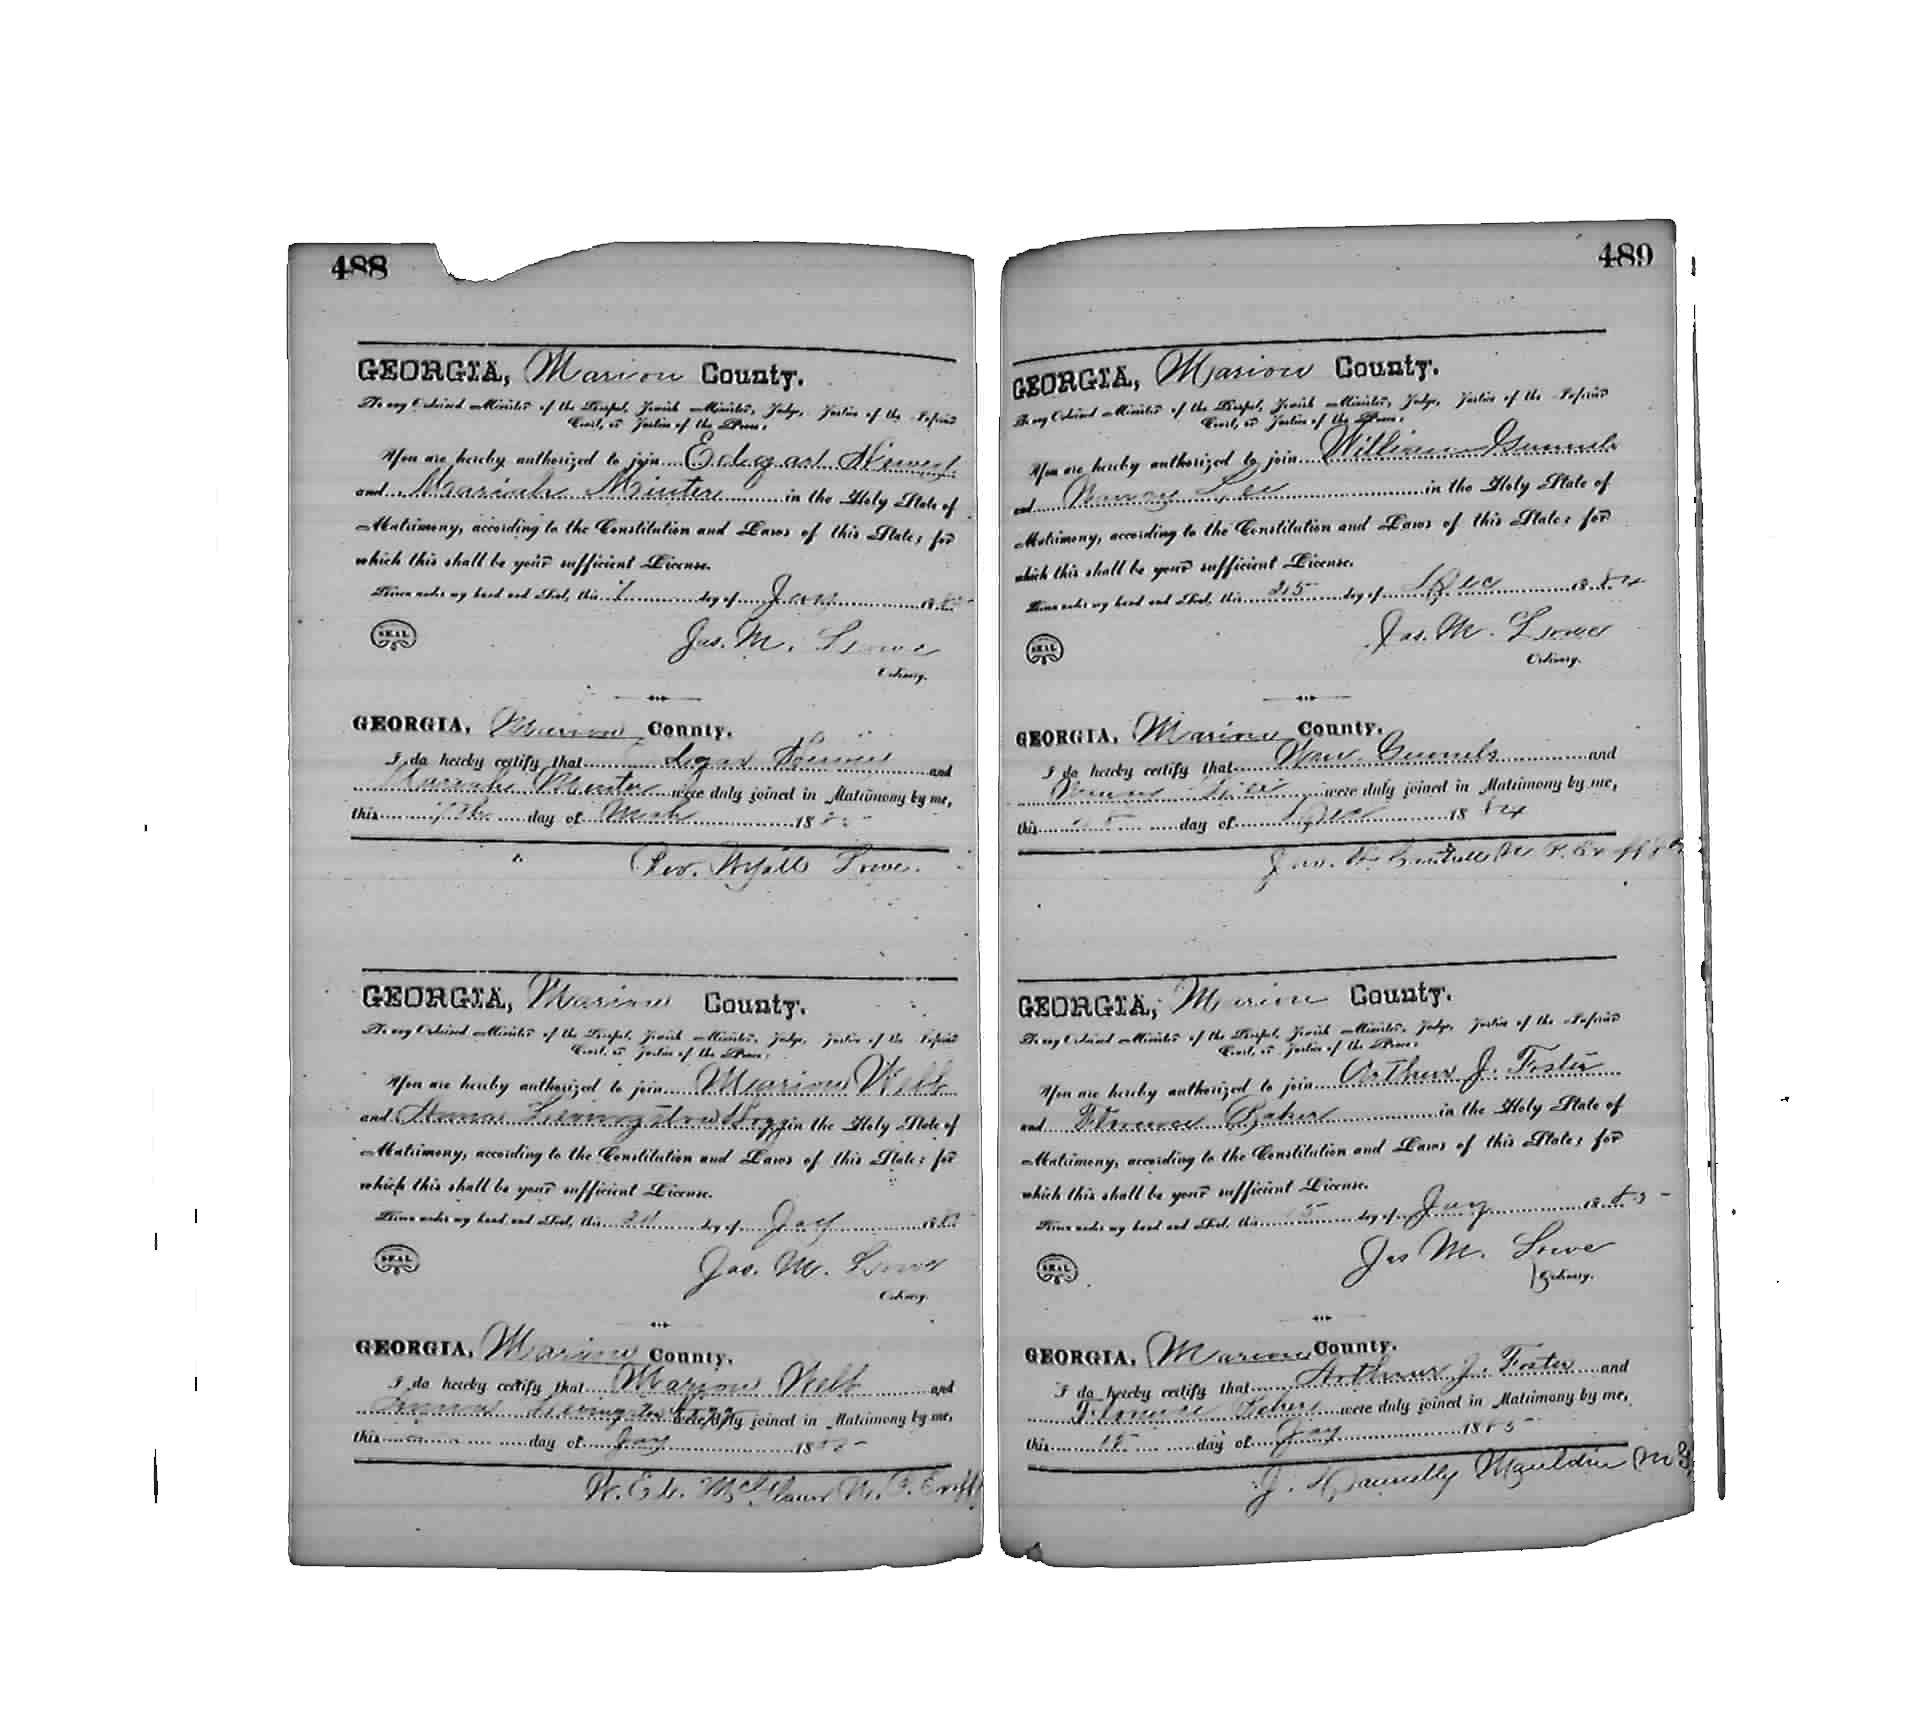 488
GEORGIA, Marion County.
To any Ordained Minister of the Gospel, Jewish Minister, Judge, Justice of the Inferior
Court, or Justice of the Peace:
You are hereby authorized to join Edgar
and Mariah Minter in the Holy State of
Matrimony, according to the Constitution and Laws of this State; for
which this shall be your sufficient License.
Given under my hand and Seal, this 7 day of Jany 188
SEAL
Jas. M. Lowe
Ordinary.
GEORGIA, Marion County.
I do hereby certify that Edgar and
Mariah Minter were duly joined in Matrimony by me,
this 7th day of 188
Rev. Wyatt Lowe.
GEORGIA, Marion County.
To any Ordained Minister of the Gospel, Jewish Minister, Judge, Justice of the Inferior
Court, or Justice of the Peace:
You are hereby authorized to join Marion Webb
and Livingston in the Holy State of
Matrimony, according to the Constitution and Laws of this State; for
which this shall be your sufficient License.
Given under my hand and Seal, this day of Jay 188
SEAL
Jas. M. Lowe
Ordinary.
GEORGIA, Marion County.
I do hereby certify that Marion Webb and
Livingston were duly joined in Matrimony by me,
this day of Jay 188
W. Ed. N. P. Ex off
489
GEORGIA, Marion County.
To any Ordained Minister of the Gospel, Jewish Minister, Judge, Justice of the Inferior
Court, or Justice of the Peace:
You are hereby authorized to join William Gunnels
and Lee in the Holy State of
Matrimony, according to the Constitution and Laws of this State; for
which this shall be your sufficient License.
Given under my hand and Seal, this 25 day of Dec 1884
SEAL
Jas. M. Lowe
Ordinary.
GEORGIA, Marion County.
I do hereby certify that Wm. Gunnels and
were duly joined in Matrimony by me,
this day of Dec 1884
N. P. Ex off
GEORGIA, Marion County.
To any Ordained Minister of the Gospel, Jewish Minister, Judge, Justice of the Inferior
Court, or Justice of the Peace:
You are hereby authorized to join Arthur J. Foster
and Florence Baker in the Holy State of
Matrimony, according to the Constitution and Laws of this State; for
which this shall be your sufficient License.
Given under my hand and Seal, this 15 day of Jay 1885
SEAL
Jas M. Lowe
Ordinary.
GEORGIA, Marion County.
I do hereby certify that Arthur J. Foster and
Florence Baker were duly joined in Matrimony by me,
this 15 day of Jay 1885
J. Dannelly Mauldin M G